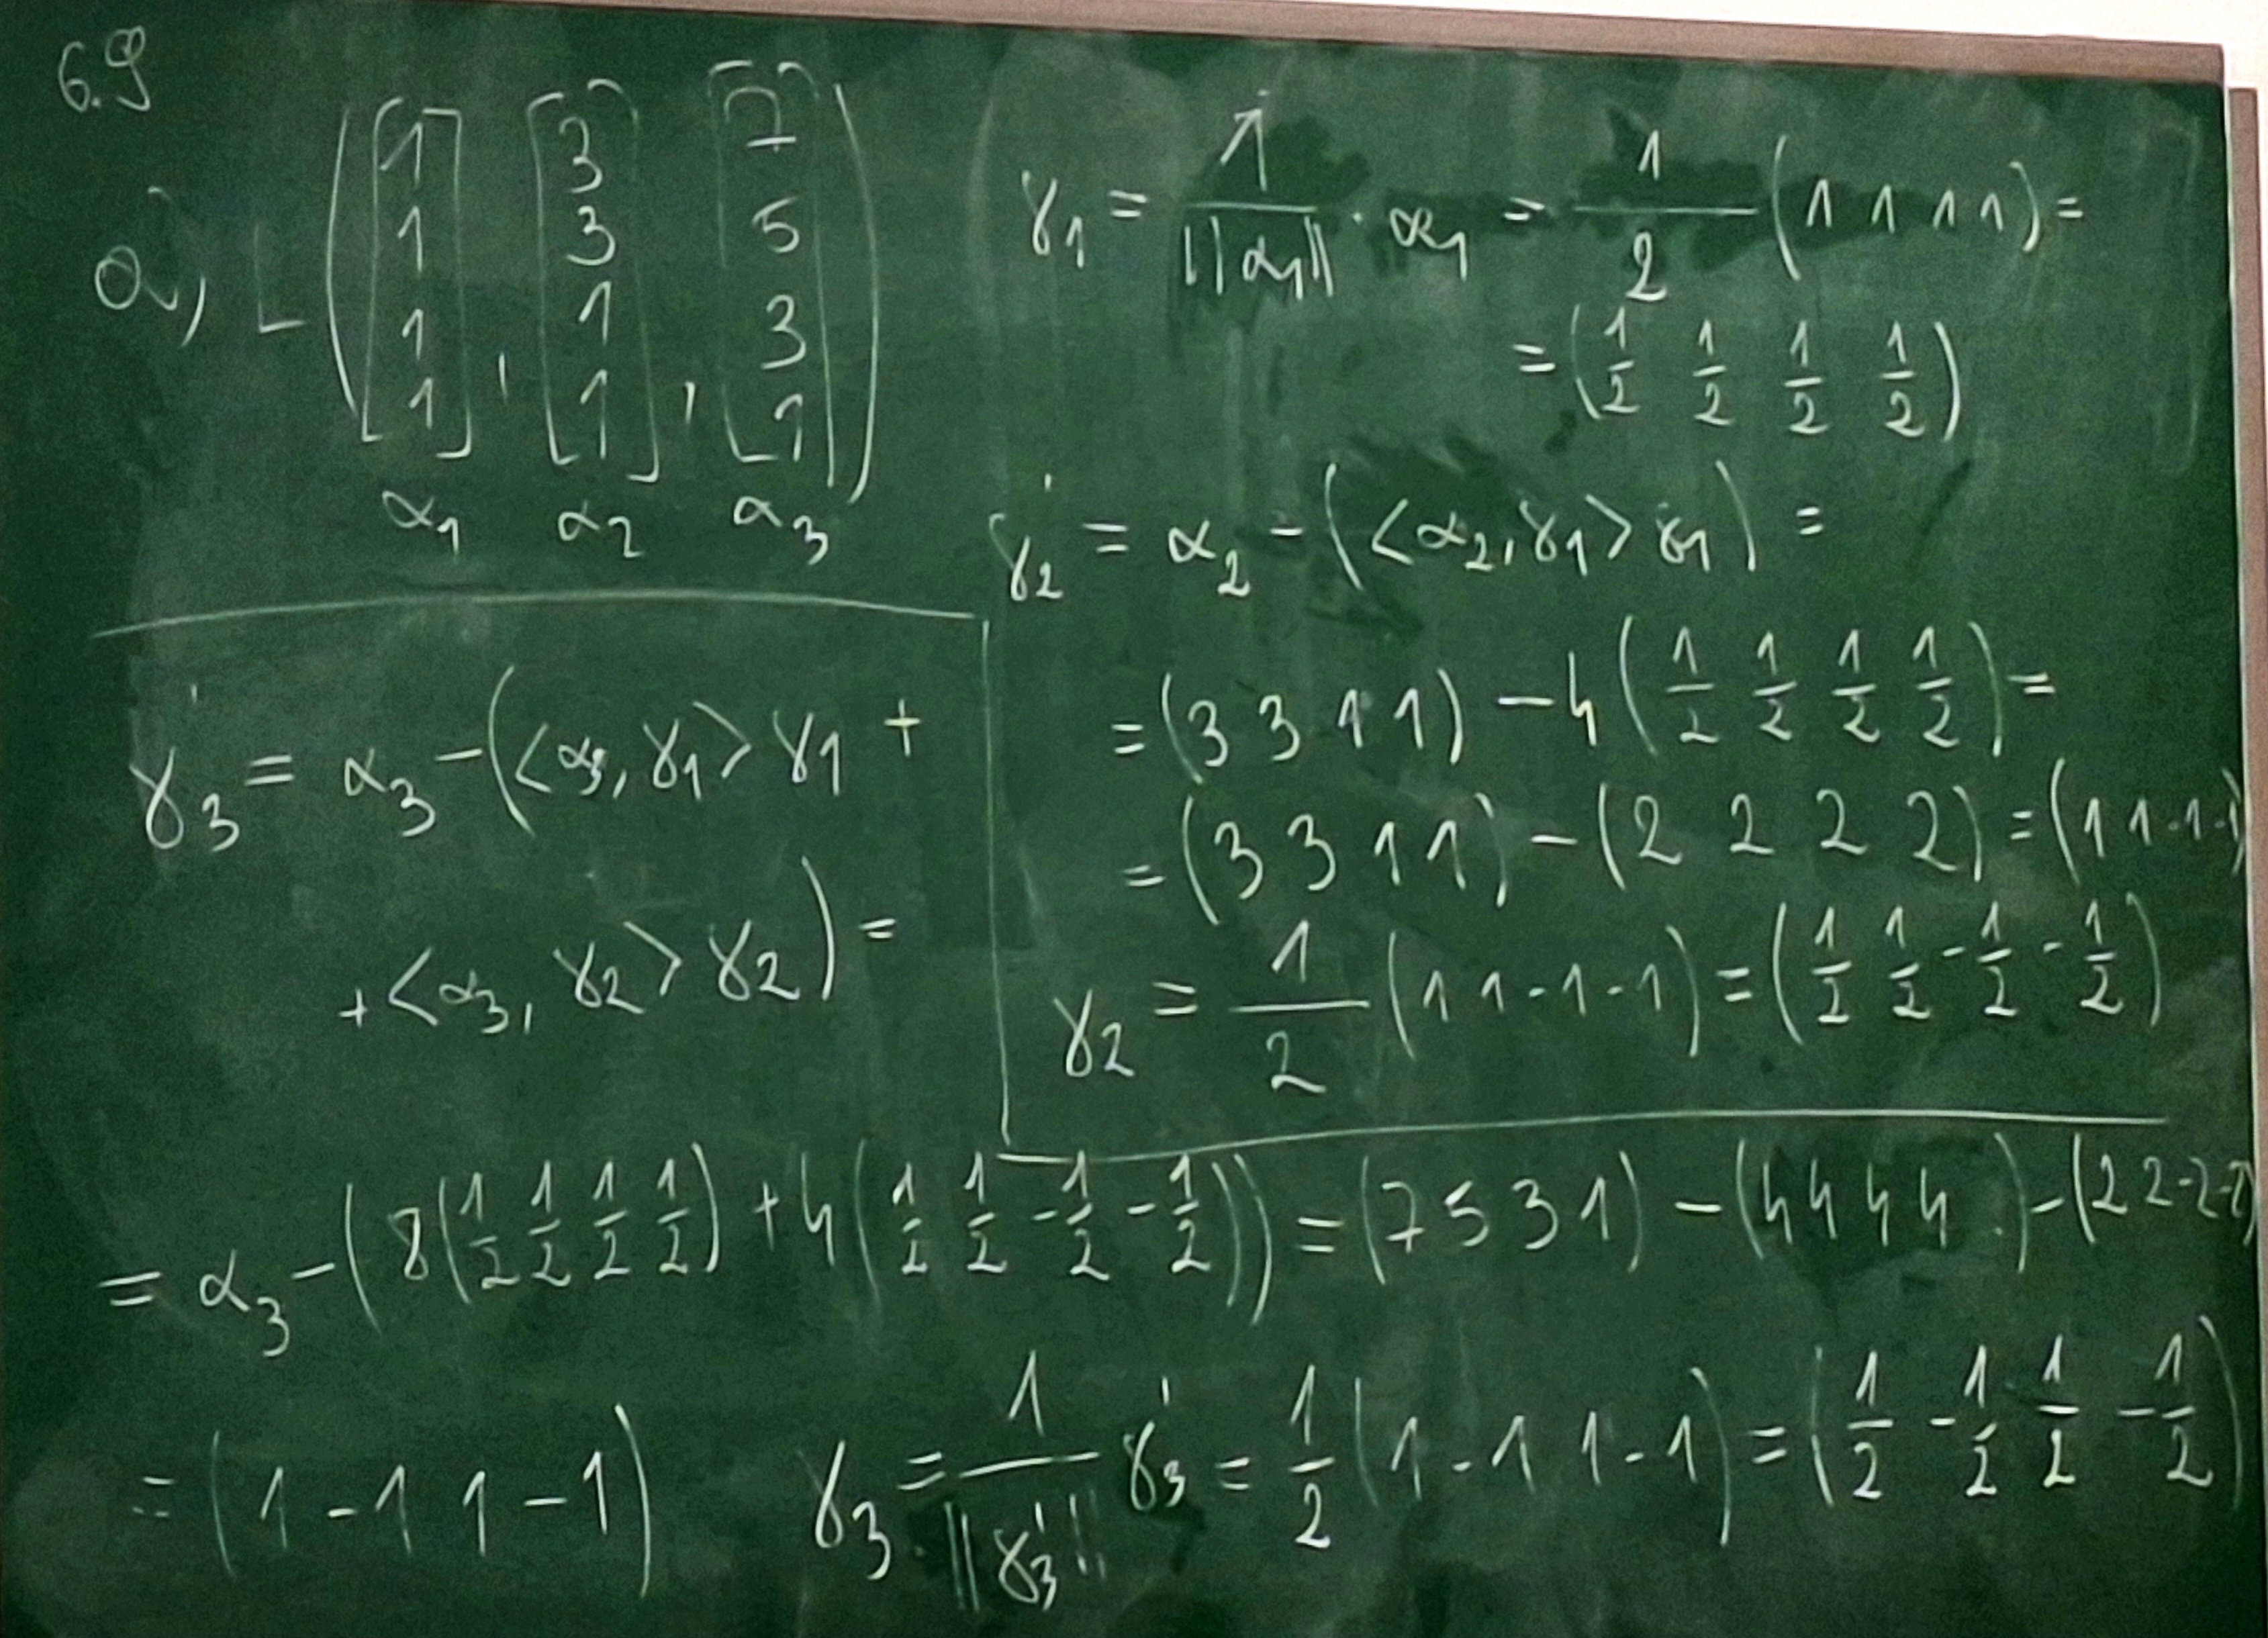 6.9
a) L ( [1 1 1 1], [3 3 1 1], [7 5 3 1] )
α₁ α₂ α₃
γ₁ = 1/||α₁|| · α₁ = 1/2 (1 1 1 1) =
= (1/2 1/2 1/2 1/2)
γ₂' = α₂ - (<α₂, γ₁> γ₁) =
= (3 3 1 1) - 4 (1/2 1/2 1/2 1/2) =
= (3 3 1 1) - (2 2 2 2) = (1 1 -1 -1)
γ₂ = 1/2 (1 1 -1 -1) = (1/2 1/2 -1/2 -1/2)
γ₃' = α₃ - (<α₃, γ₁> γ₁ +
+ <α₃, γ₂> γ₂) =
= α₃ - (8 (1/2 1/2 1/2 1/2) + 4 (1/2 1/2 -1/2 -1/2)) = (7 5 3 1) - (4 4 4 4) - (2 2 -2 -2)
= (1 -1 1 -1) γ₃ = 1/||γ₃'|| γ₃' = 1/2 (1 -1 1 -1) = (1/2 -1/2 1/2 -1/2)